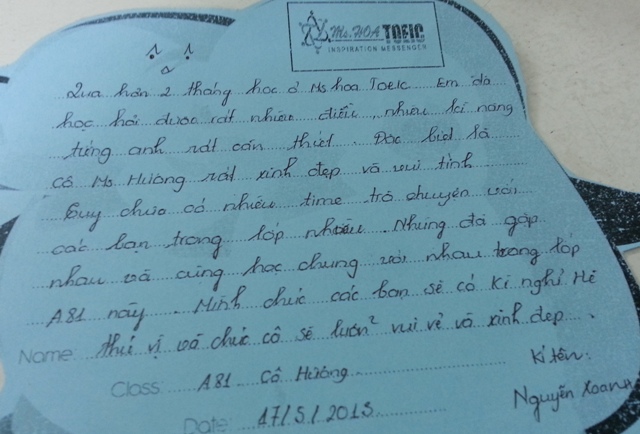 Ms. HOA TOEIC
INSPIRATION MESSENGER
Qua hơn 2 tháng học ở Ms hoa Toeic. Em đã
học hỏi được rất nhiều điều, nhiều kĩ năng
tiếng anh rất cần thiết. Đặc biệt là
cô Ms Hương rất xinh đẹp và vui tính
Tuy chưa có nhiều time trò chuyện với
các bạn trong lớp nhiều. Nhưng đã gặp
nhau và cùng học chung với nhau trong lớp
A81 này. Mình chúc các bạn sẽ có kì nghỉ Hè
Name: thú vị và chúc cô sẽ luôn² vui vẻ và xinh đẹp.
Class: A81 - Cô Hương Kí tên:
Date: 17/5/2015 Nguyễn Xoan